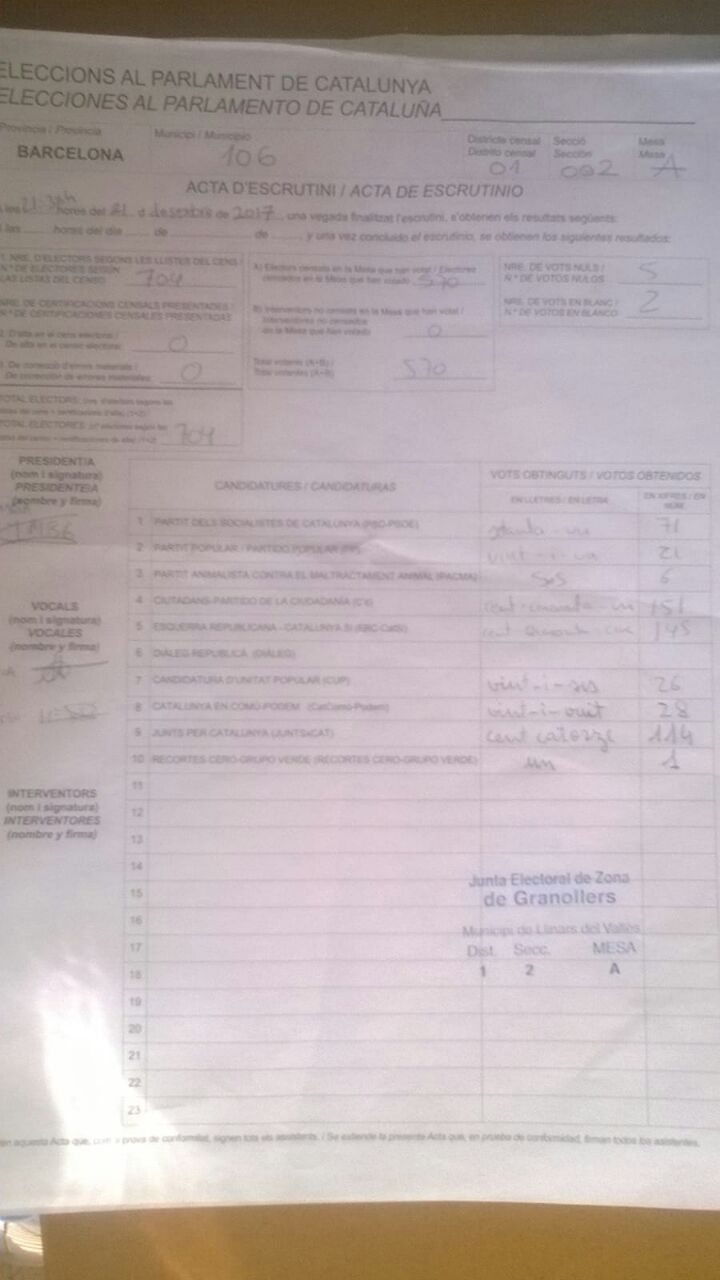 ELECCIONS AL PARLAMENT DE CATALUNYA
ELECCIONES AL PARLAMENTO DE CATALUÑA
Província / Provincia
Municipi / Municipio
Districte censal Secció Mesa
Distrito censal Sección Mesa
BARCELONA 106 01 002 A
ACTA D'ESCRUTINI / ACTA DE ESCRUTINIO
21:30h hores del 21 d desembre de 2017, una vegada finalitzat l'escrutini, s'obtenen els resultats següents:
las horas del día de de , y una vez concluido el escrutinio, se obtienen los siguientes resultados:
1. NRE. D'ELECTORS SEGONS LES LLISTES DEL CENS
N.º DE ELECTORES SEGÚN
LAS LISTAS DEL CENSO 704
NRE. DE CERTIFICACIONS CENSALS PRESENTADES /
N.º DE CERTIFICACIONES CENSALES PRESENTADAS
2. D'alta en el cens electoral /
De alta en el censo electoral: 0
3. De correcció d'errors materials /
De corrección de errores materiales: 0
TOTAL ELECTORS:
TOTAL ELECTORES: 704
A) Electors censats en la Mesa que han votat / Electores
censados en la Mesa que han votado 570
B) Interventors no censats en la Mesa que han votat /
Interventores no censados
en la Mesa que han votado 0
Total votants (A+B) /
Total votantes (A+B) 570
NRE. DE VOTS NULS /
N.º DE VOTOS NULOS 5
NRE. DE VOTS EN BLANC /
N.º DE VOTOS EN BLANCO 2
PRESIDENT/A
(nom i signatura)
PRESIDENTE/A
(nombre y firma)
VOCALS
(nom i signatura)
VOCALES
(nombre y firma)
INTERVENTORS
(nom i signatura)
INTERVENTORES
(nombre y firma)
CANDIDATURES / CANDIDATURAS
VOTS OBTINGUTS / VOTOS OBTENIDOS
EN LLETRES / EN LETRA
EN XIFRES / EN NÚM.
1 PARTIT DELS SOCIALISTES DE CATALUNYA (PSC-PSOE) setanta-un 71
2 PARTIT POPULAR / PARTIDO POPULAR (PP) vint-i-un 21
3 PARTIT ANIMALISTA CONTRA EL MALTRACTAMENT ANIMAL (PACMA) Sis 6
4 CIUTADANS-PARTIDO DE LA CIUDADANÍA (C's) 151
5 ESQUERRA REPUBLICANA - CATALUNYA SÍ (ERC-CatSí) 145
6 DIÀLEG REPUBLICÀ (DIÀLEG)
7 CANDIDATURA D'UNITAT POPULAR (CUP) vint-i-sis 26
8 CATALUNYA EN COMÚ-PODEM (CatComú-Podem) vint-i-vuit 28
9 JUNTS PER CATALUNYA (JUNTSxCAT) cent catorze 114
10 RECORTES CERO-GRUPO VERDE (RECORTES CERO-GRUPO VERDE) un 1
11
12
13
14
15
16
17
18
19
20
21
22
23
Junta Electoral de Zona
de Granollers
Municipi de Llinars del Vallès
Dist. Secc. MESA
1 2 A
en aquesta Acta que, com a prova de conformitat, signen tots els assistents. / Se extiende la presente Acta que, en prueba de conformidad, firman todos los asistentes.